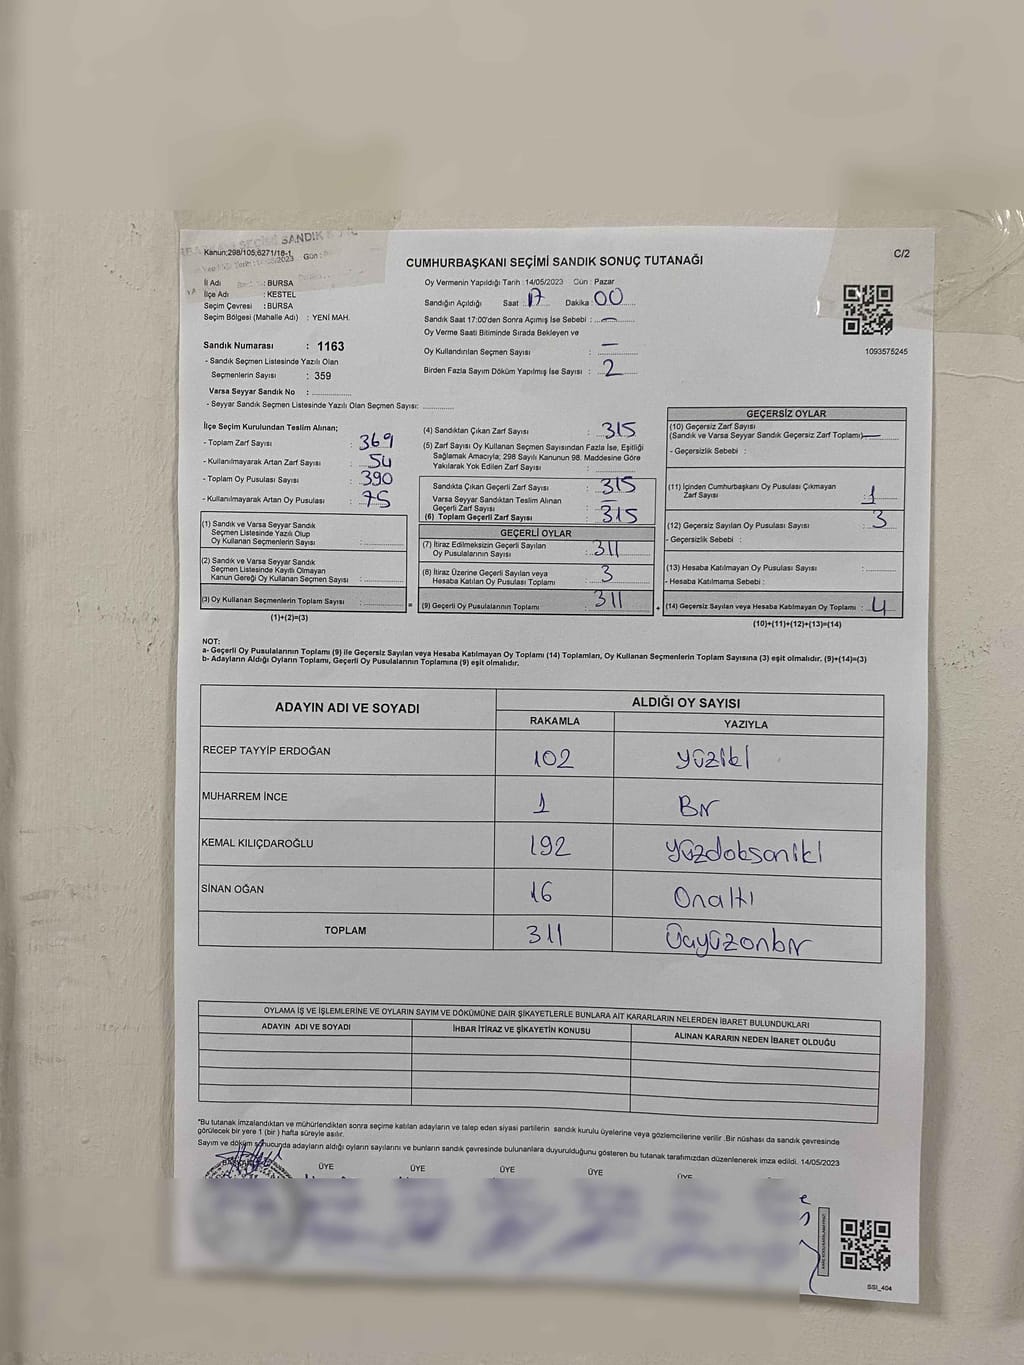 SANDIK
Kanun;298/105;6271/18-1
C/2
CUMHURBAŞKANI SEÇİMİ SANDIK SONUÇ TUTANAĞI
İl Adı : BURSA
İlçe Adı : KESTEL
Seçim Çevresi : BURSA
Seçim Bölgesi (Mahalle Adı) : YENİ MAH.
Oy Vermenin Yapıldığı Tarih : 14/05/2023 Gün : Pazar
Sandığın Açıldığı Saat : 17 Dakika : 00
Sandık Saat 17:00'den Sonra Açımış İse Sebebi : —
Oy Verme Saati Bitiminde Sırada Bekleyen ve
Oy Kullandırılan Seçmen Sayısı : —
Birden Fazla Sayım Döküm Yapılmış İse Sayısı : 2
1093575245
Sandık Numarası : 1163
- Sandık Seçmen Listesinde Yazılı Olan
Seçmenlerin Sayısı : 359
Varsa Seyyar Sandık No :
- Seyyar Sandık Seçmen Listesinde Yazılı Olan Seçmen Sayısı:
İlçe Seçim Kurulundan Teslim Alınan;
- Toplam Zarf Sayısı : 369
- Kullanılmayarak Artan Zarf Sayısı : 54
- Toplam Oy Pusulası Sayısı : 390
- Kullanılmayarak Artan Oy Pusulası : 75
(1) Sandık ve Varsa Seyyar Sandık
Seçmen Listesinde Yazılı Olup
Oy Kullanan Seçmenlerin Sayısı :
(2) Sandık ve Varsa Seyyar Sandık
Seçmen Listesinde Kayıtlı Olmayan
Kanun Gereği Oy Kullanan Seçmen Sayısı :
(3) Oy Kullanan Seçmenlerin Toplam Sayısı :
(1)+(2)=(3)
(4) Sandıktan Çıkan Zarf Sayısı : 315
(5) Zarf Sayısı Oy Kullanan Seçmen Sayısından Fazla İse, Eşitliği
Sağlamak Amacıyla; 298 Sayılı Kanunun 98. Maddesine Göre
Yakılarak Yok Edilen Zarf Sayısı :
Sandıkta Çıkan Geçerli Zarf Sayısı : 315
Varsa Seyyar Sandıktan Teslim Alınan
Geçerli Zarf Sayısı : —
(6) Toplam Geçerli Zarf Sayısı : 315
GEÇERLİ OYLAR
(7) İtiraz Edilmeksizin Geçerli Sayılan
Oy Pusulalarının Sayısı : 311
(8) İtiraz Üzerine Geçerli Sayılan veya
Hesaba Katılan Oy Pusulası Toplamı : 3
= (9) Geçerli Oy Pusulalarının Toplamı : 311
GEÇERSİZ OYLAR
(10) Geçersiz Zarf Sayısı
(Sandık ve Varsa Seyyar Sandık Geçersiz Zarf Toplamı) —
- Geçersizlik Sebebi :
(11) İçinden Cumhurbaşkanı Oy Pusulası Çıkmayan
Zarf Sayısı : 1
(12) Geçersiz Sayılan Oy Pusulası Sayısı : 3
- Geçersizlik Sebebi :
(13) Hesaba Katılmayan Oy Pusulası Sayısı :
- Hesaba Katılmama Sebebi :
+ (14) Geçersiz Sayılan veya Hesaba Katılmayan Oy Toplamı : 4
(10)+(11)+(12)+(13)=(14)
NOT:
a- Geçerli Oy Pusulalarının Toplamı (9) ile Geçersiz Sayılan veya Hesaba Katılmayan Oy Toplamı (14) Toplamları, Oy Kullanan Seçmenlerin Toplam Sayısına (3) eşit olmalıdır. (9)+(14)=(3)
b- Adayların Aldığı Oyların Toplamı, Geçerli Oy Pusulalarının Toplamına (9) eşit olmalıdır.
ADAYIN ADI VE SOYADI ALDIĞI OY SAYISI
RAKAMLA YAZIYLA
RECEP TAYYİP ERDOĞAN 102 yüziki
MUHARREM İNCE 1 Bir
KEMAL KILIÇDAROĞLU 192 yüzdoksaniki
SİNAN OĞAN 16 Onaltı
TOPLAM 311 Üçyüzonbir
OYLAMA İŞ VE İŞLEMLERİNE VE OYLARIN SAYIM VE DÖKÜMÜNE DAİR ŞİKAYETLERLE BUNLARA AİT KARARLARIN NELERDEN İBARET BULUNDUKLARI
ADAYIN ADI VE SOYADI İHBAR İTİRAZ VE ŞİKAYETİN KONUSU ALINAN KARARIN NEDEN İBARET OLDUĞU
*Bu tutanak imzalandıktan ve mühürlendikten sonra seçime katılan adayların ve talep eden siyasi partilerin sandık kurulu üyelerine veya gözlemcilerine verilir .Bir nüshası da sandık çevresinde
görülecek bir yere 1 (bir) hafta süreyle asılır.
Sayım ve döküm sonucunda adayların aldığı oyların sayılarını ve bunların sandık çevresinde bulunanlara duyurulduğunu gösteren bu tutanak tarafımızdan düzenlenerek imza edildi. 14/05/2023
ÜYE ÜYE ÜYE ÜYE ÜYE
SSI_404